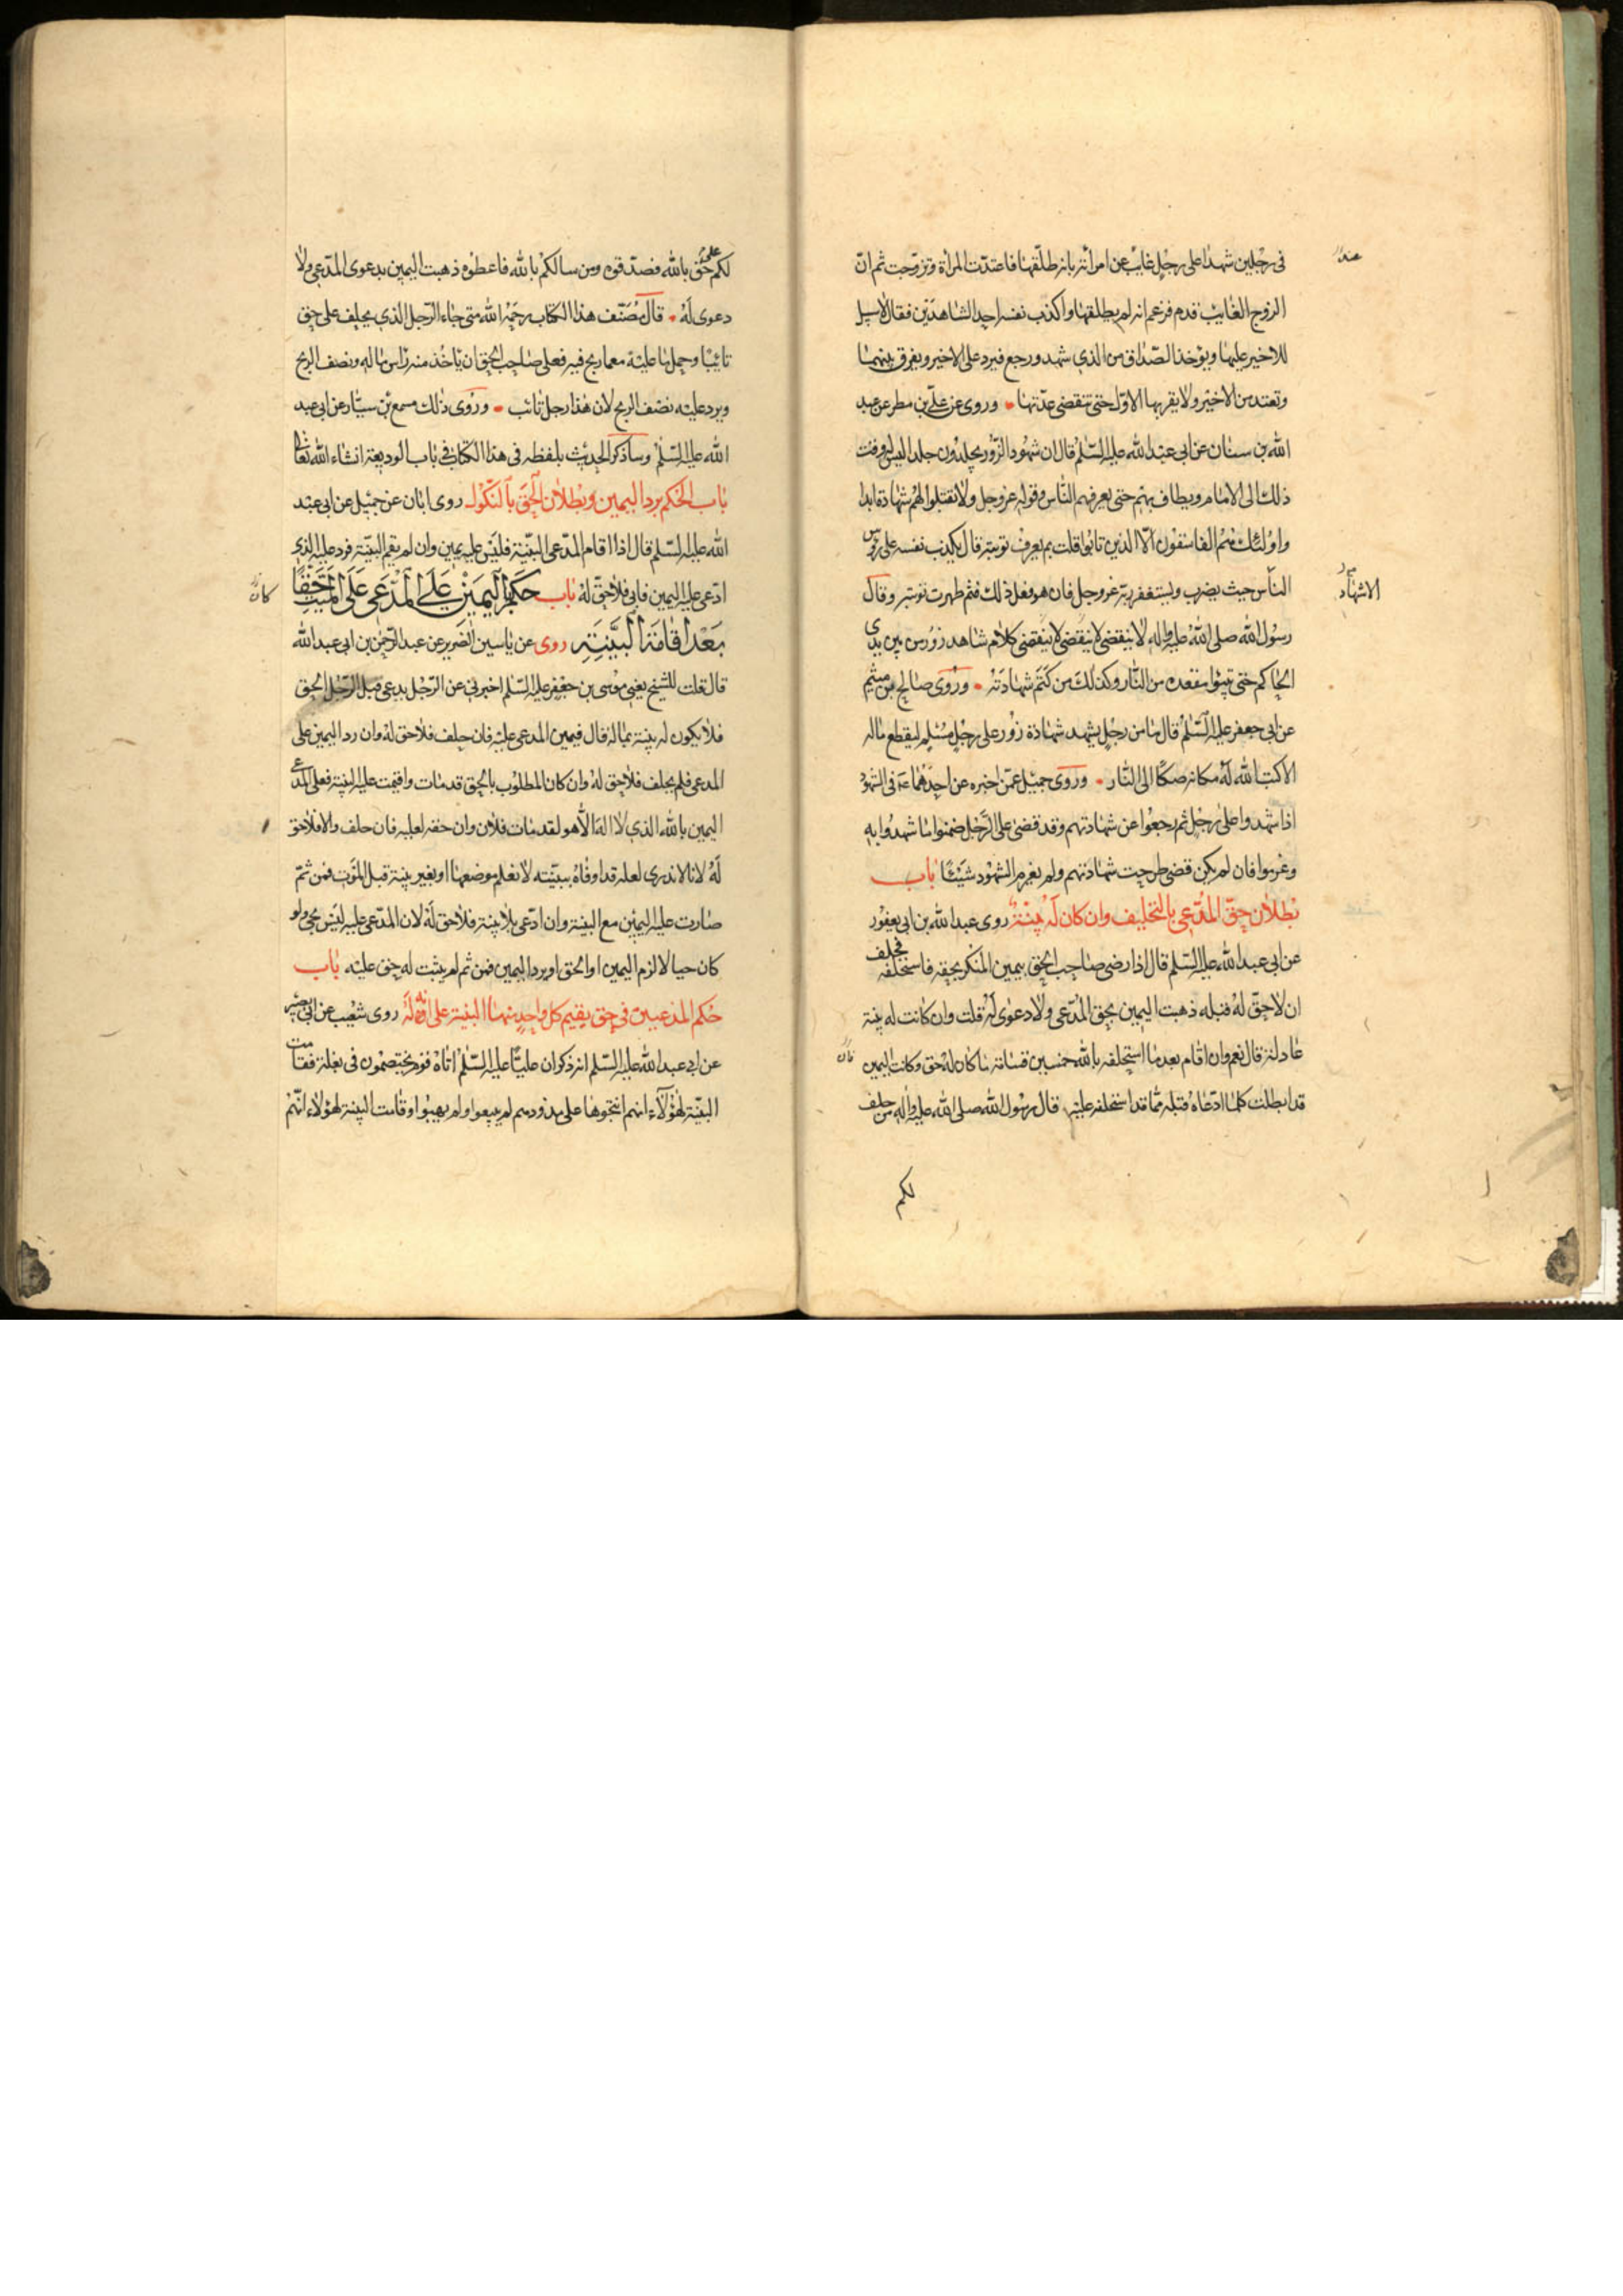 فى رجلين شهدا على رجل غائب عن امرأته بانه طلّقها فاعتدّت المرأة وتزوّجت ثم انّ
الزوج الغائب قدم فزعم انه لم يطلقها واكذب نفسه احد الشاهدين فقال لا سبيل
للاخير عليها ويؤخذ الصّداق من الذي شهد ورجع فيرد على الاخير ويفرق بينهما
وتعتد من الاخير ولا يقربها الاوّل حتى تنقضى عدّتها وروى عن علي بن مطر عن عبد
الله بن سنان عن ابى عبد الله عليه السّلم قال ان شهود الزّور يجلدون جلدا ليس له وقت
ذلك الى الامام ويطاف بهم حتى يعرفهم النّاس وقوله عز وجل ولا تقبلوا لهم شهادة ابدا
واولئك هم الفاسقون الّا الذين تابوا قلت بم يعرف توبته قال يكذب نفسه على رؤس
النّاس حيث يضرب ويستغفر ربّه عز وجل فان هو فعل ذلك فثم ظهرت توبته وقال
رسول الله صلى الله عليه واله لا ينقضى كلام شاهد زور من بين يدى
الحاكم حتى يتبوّا مقعده من النّار وكذلك من كتم شهادته وروى صالح بن ميثم
عن ابى جعفر عليه السّلم قال ما من رجل يشهد شهادة زور على رجل مسلم ليقطع ماله
الا كتب الله له مكانه صكّا الى النّار وروى جميل عمّن اخبره عن احدهما ع فى الشهود
اذا شهدوا على رجل ثم رجعوا عن شهادتهم وقد قضى على الرّجل ضمنوا ما شهدوا به
وغرموا فان لم يكن قضى طرحت شهادتهم ولم يغرم الشهود شيئا باب
بطلان حقّ المدّعى بالتحليف وان كان له بيّنة روى عبد الله بن ابى يعفور
عن ابى عبد الله عليه السّلم قال اذا رضى صاحب الحق بيمين المنكر بحقه فاستحلفه فحلف
ان لا حقّ له قبله ذهبت اليمين بحق المدّعى ولا دعوى له قلت وان كانت له بينة
عادلة قال نعم وان اقام بعد ما استحلفه بالله خمسين قسامة ما كان له حق وكانت اليمين
قد ابطلت كلما ادّعاه قبله ممّا قد استحلفه عليه قال رسول الله صلى الله عليه واله من حلف
لكم
الاشهاد
لكم بالله على حق فصدّقوه ومن سالكم بالله فاعطوه ذهبت اليمين بدعوى المدّعى ولا
دعوى له قال مصنّف هذا الكتاب رحمه الله متى جاء الرّجل الذي يحلف على حق
تائبا وحمل ما عليه مع ما ربح فيه فعلى صاحب الحق ان ياخذ منه راس ماله ونصف الربح
ويرد عليه نصف الربح لان هذا رجل تائب وروى ذلك مسمع بن سيّار عن ابى عبد
الله عليه السّلم وساذكر الحديث بلفظه فى هذا الكتاب فى باب الوديعة انشاء الله تعالى
باب الحكم برد اليمين وبطلان الحقّ بالنّكول روى ابان عن جميل عن ابى عبد
الله عليه السّلم قال اذا اقام المدّعى البيّنة فليس عليه يمين وان لم يقم البيّنة فرد عليه الذى
ادّعى عليه اليمين فابى فلا حقّ له باب حكم اليمين على المدّعى على الميّت حقّا
بعد اقامة البيّنة روى عن ياسين الضرير عن عبد الرّحمن بن ابى عبد الله
قال قلت للشيخ يعنى موسى بن جعفر عليه السّلم اخبرنى عن الرّجل يدعى قبل الرّجل الحق
فلا يكون له بينة بماله قال فيمين المدعى عليه فان حلف فلا حق له وان رد اليمين على
المدعى فلم يحلف فلا حق له وان كان المطلوب بالحق قد مات واقيمت عليه البينة فعلى المدّعى
اليمين بالله الذي لا اله الّا هو لقد مات فلان وان حقه لعليه فان حلف والا فلا حق
له لانا لا ندرى لعله قد اوفاه ببيّنة لا نعلم موضعها او بغير بينة قبل الموت فمن ثمّ
صارت عليه اليمين مع البينة وان ادّعى بلا بينة فلا حق له لان المدّعى عليه ليس بحى ولو
كان حيا لالزم اليمين او الحق او يرد اليمين فمن ثم لم يثبت له حق عليه باب
حكم المدعيين فى حق يقيم كل واحد منهما البينة على انّه له روى شعيب عن ابى بصير
عن ابى عبد الله عليه السّلم انه ذكر ان عليّا عليه السّلم اتاه قوم يختصمون فى بغلة فقامت
البيّنة لهؤلاء انهم انتجوها على مذودهم لم يبيعوا ولم يهبوا وقامت البينة لهؤلاء انّهم
كان